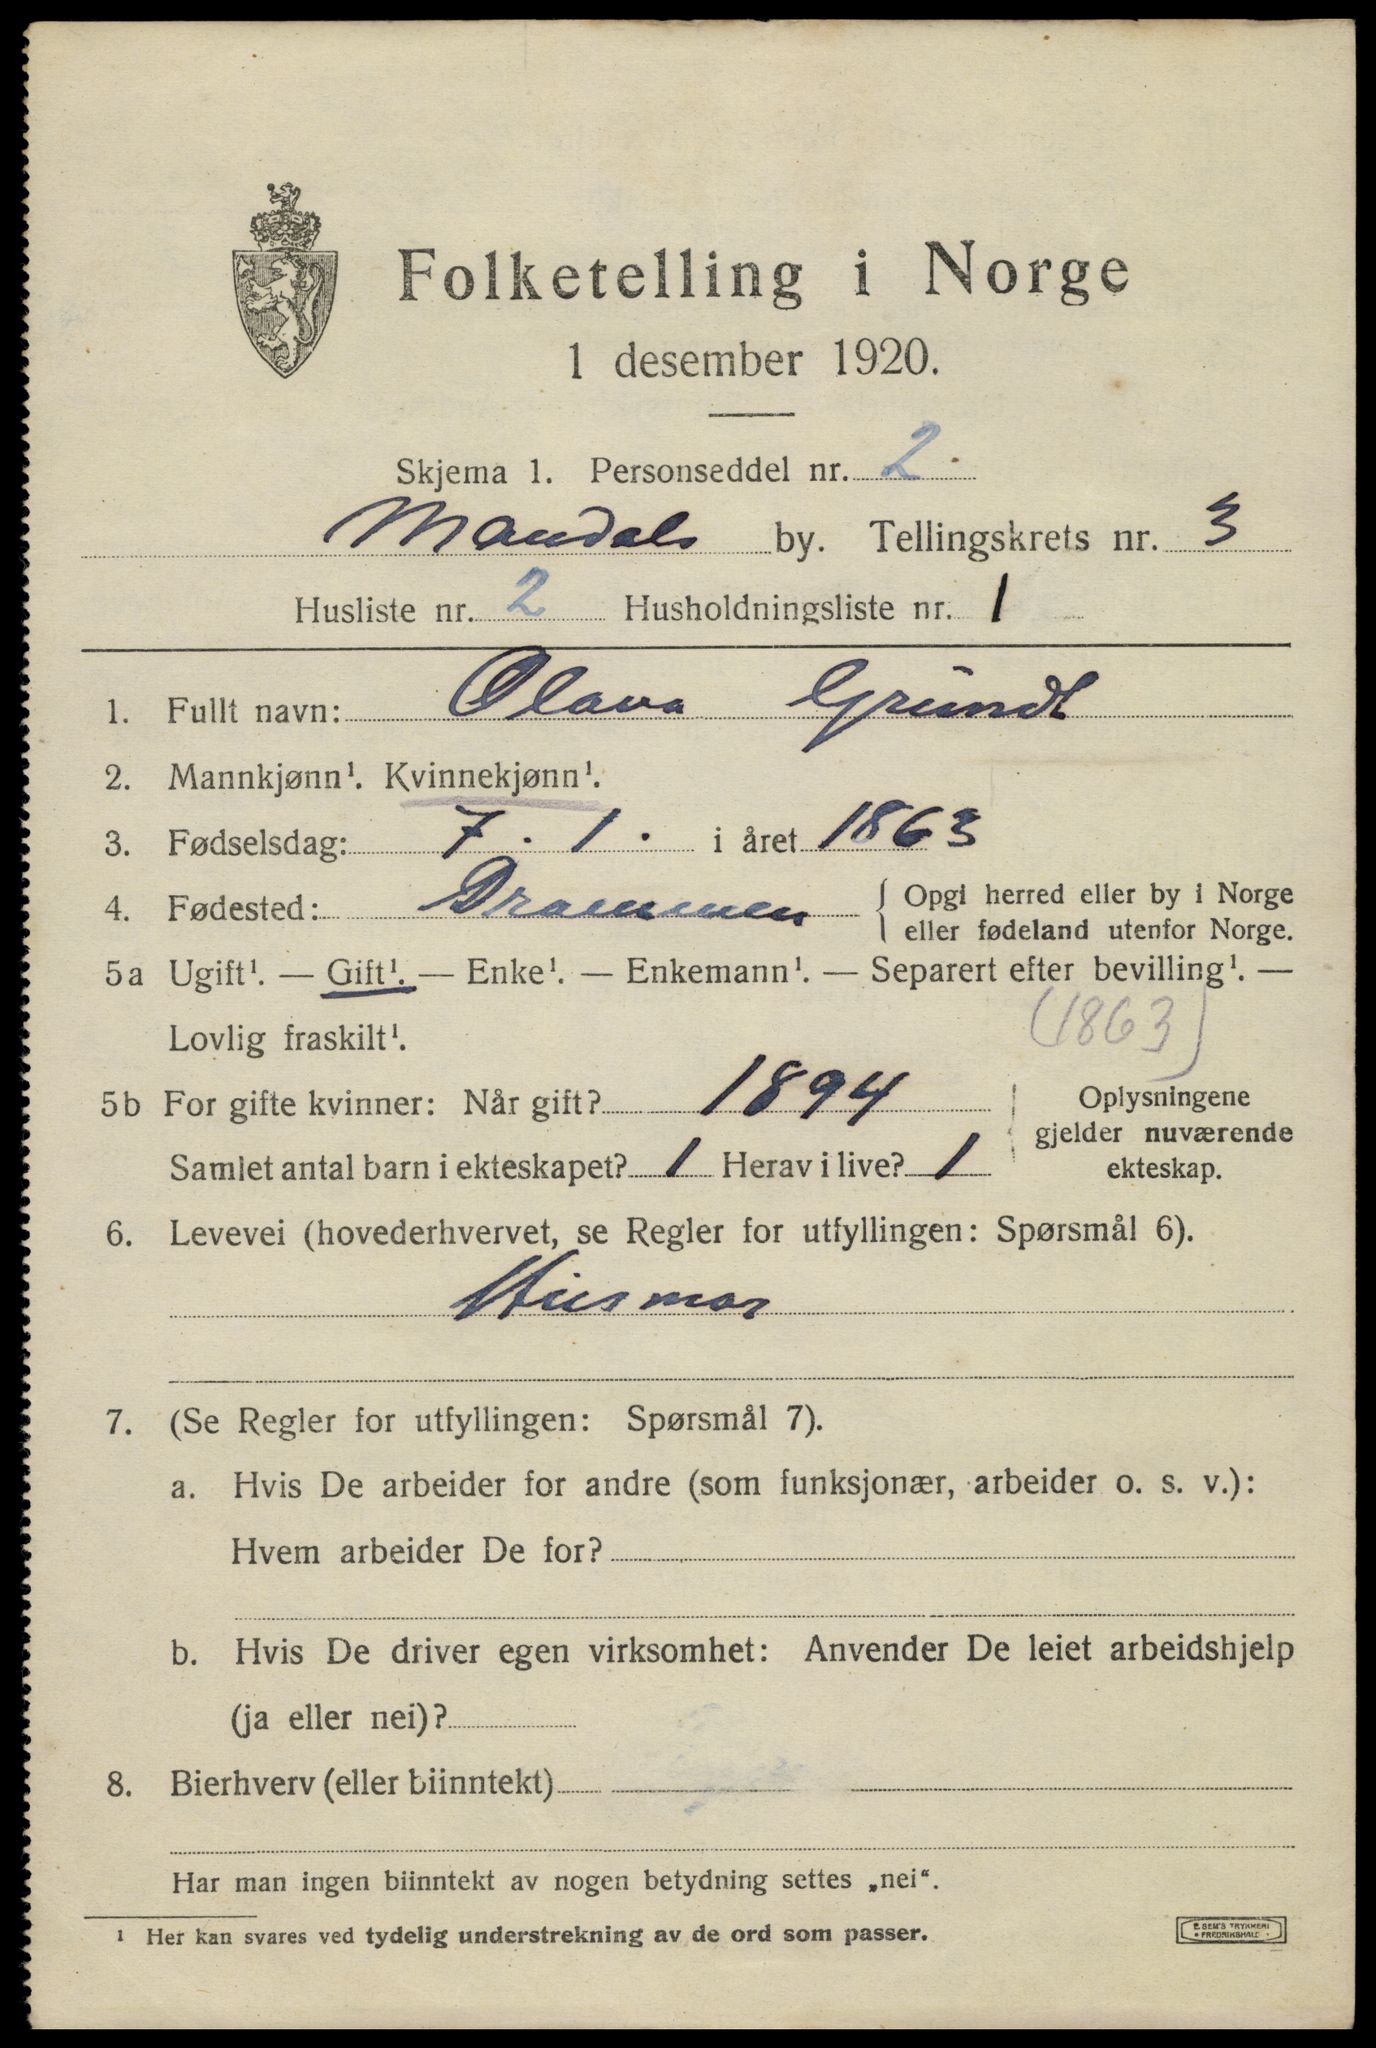 Folketelling i Norge
1 desember 1920.
Skjema 1. Personseddel nr. 2
Mandals by. Tellingskrets nr. 3
Husliste nr. 2 Husholdningsliste nr. 1
1. Fullt navn: Olava Grundt
2. Mannkjønn¹. Kvinnekjønn¹.
3. Fødselsdag: 7. 1. i året 1863
4. Fødested: Drammen { Opgi herred eller by i Norge
eller fødeland utenfor Norge.
5a Ugift¹. — Gift¹. — Enke¹. — Enkemann¹. — Separert efter bevilling¹. —
Lovlig fraskilt¹. (1863)
5b For gifte kvinner: Når gift? 1894 Oplysningene
gjelder nuværende
Samlet antal barn i ekteskapet? 1 Herav i live? 1 ekteskap.
6. Levevei (hovederhvervet, se Regler for utfyllingen: Spørsmål 6).
Husmor
7. (Se Regler for utfyllingen: Spørsmål 7).
a. Hvis De arbeider for andre (som funksjonær, arbeider o. s. v.):
Hvem arbeider De for?
b. Hvis De driver egen virksomhet: Anvender De leiet arbeidshjelp
(ja eller nei)?
8. Bierhverv (eller biinntekt)
Har man ingen biinntekt av nogen betydning settes „nei“.
¹ Her kan svares ved tydelig understrekning av de ord som passer.
E. SEM'S TRYKKERI
FREDRIKSHALD